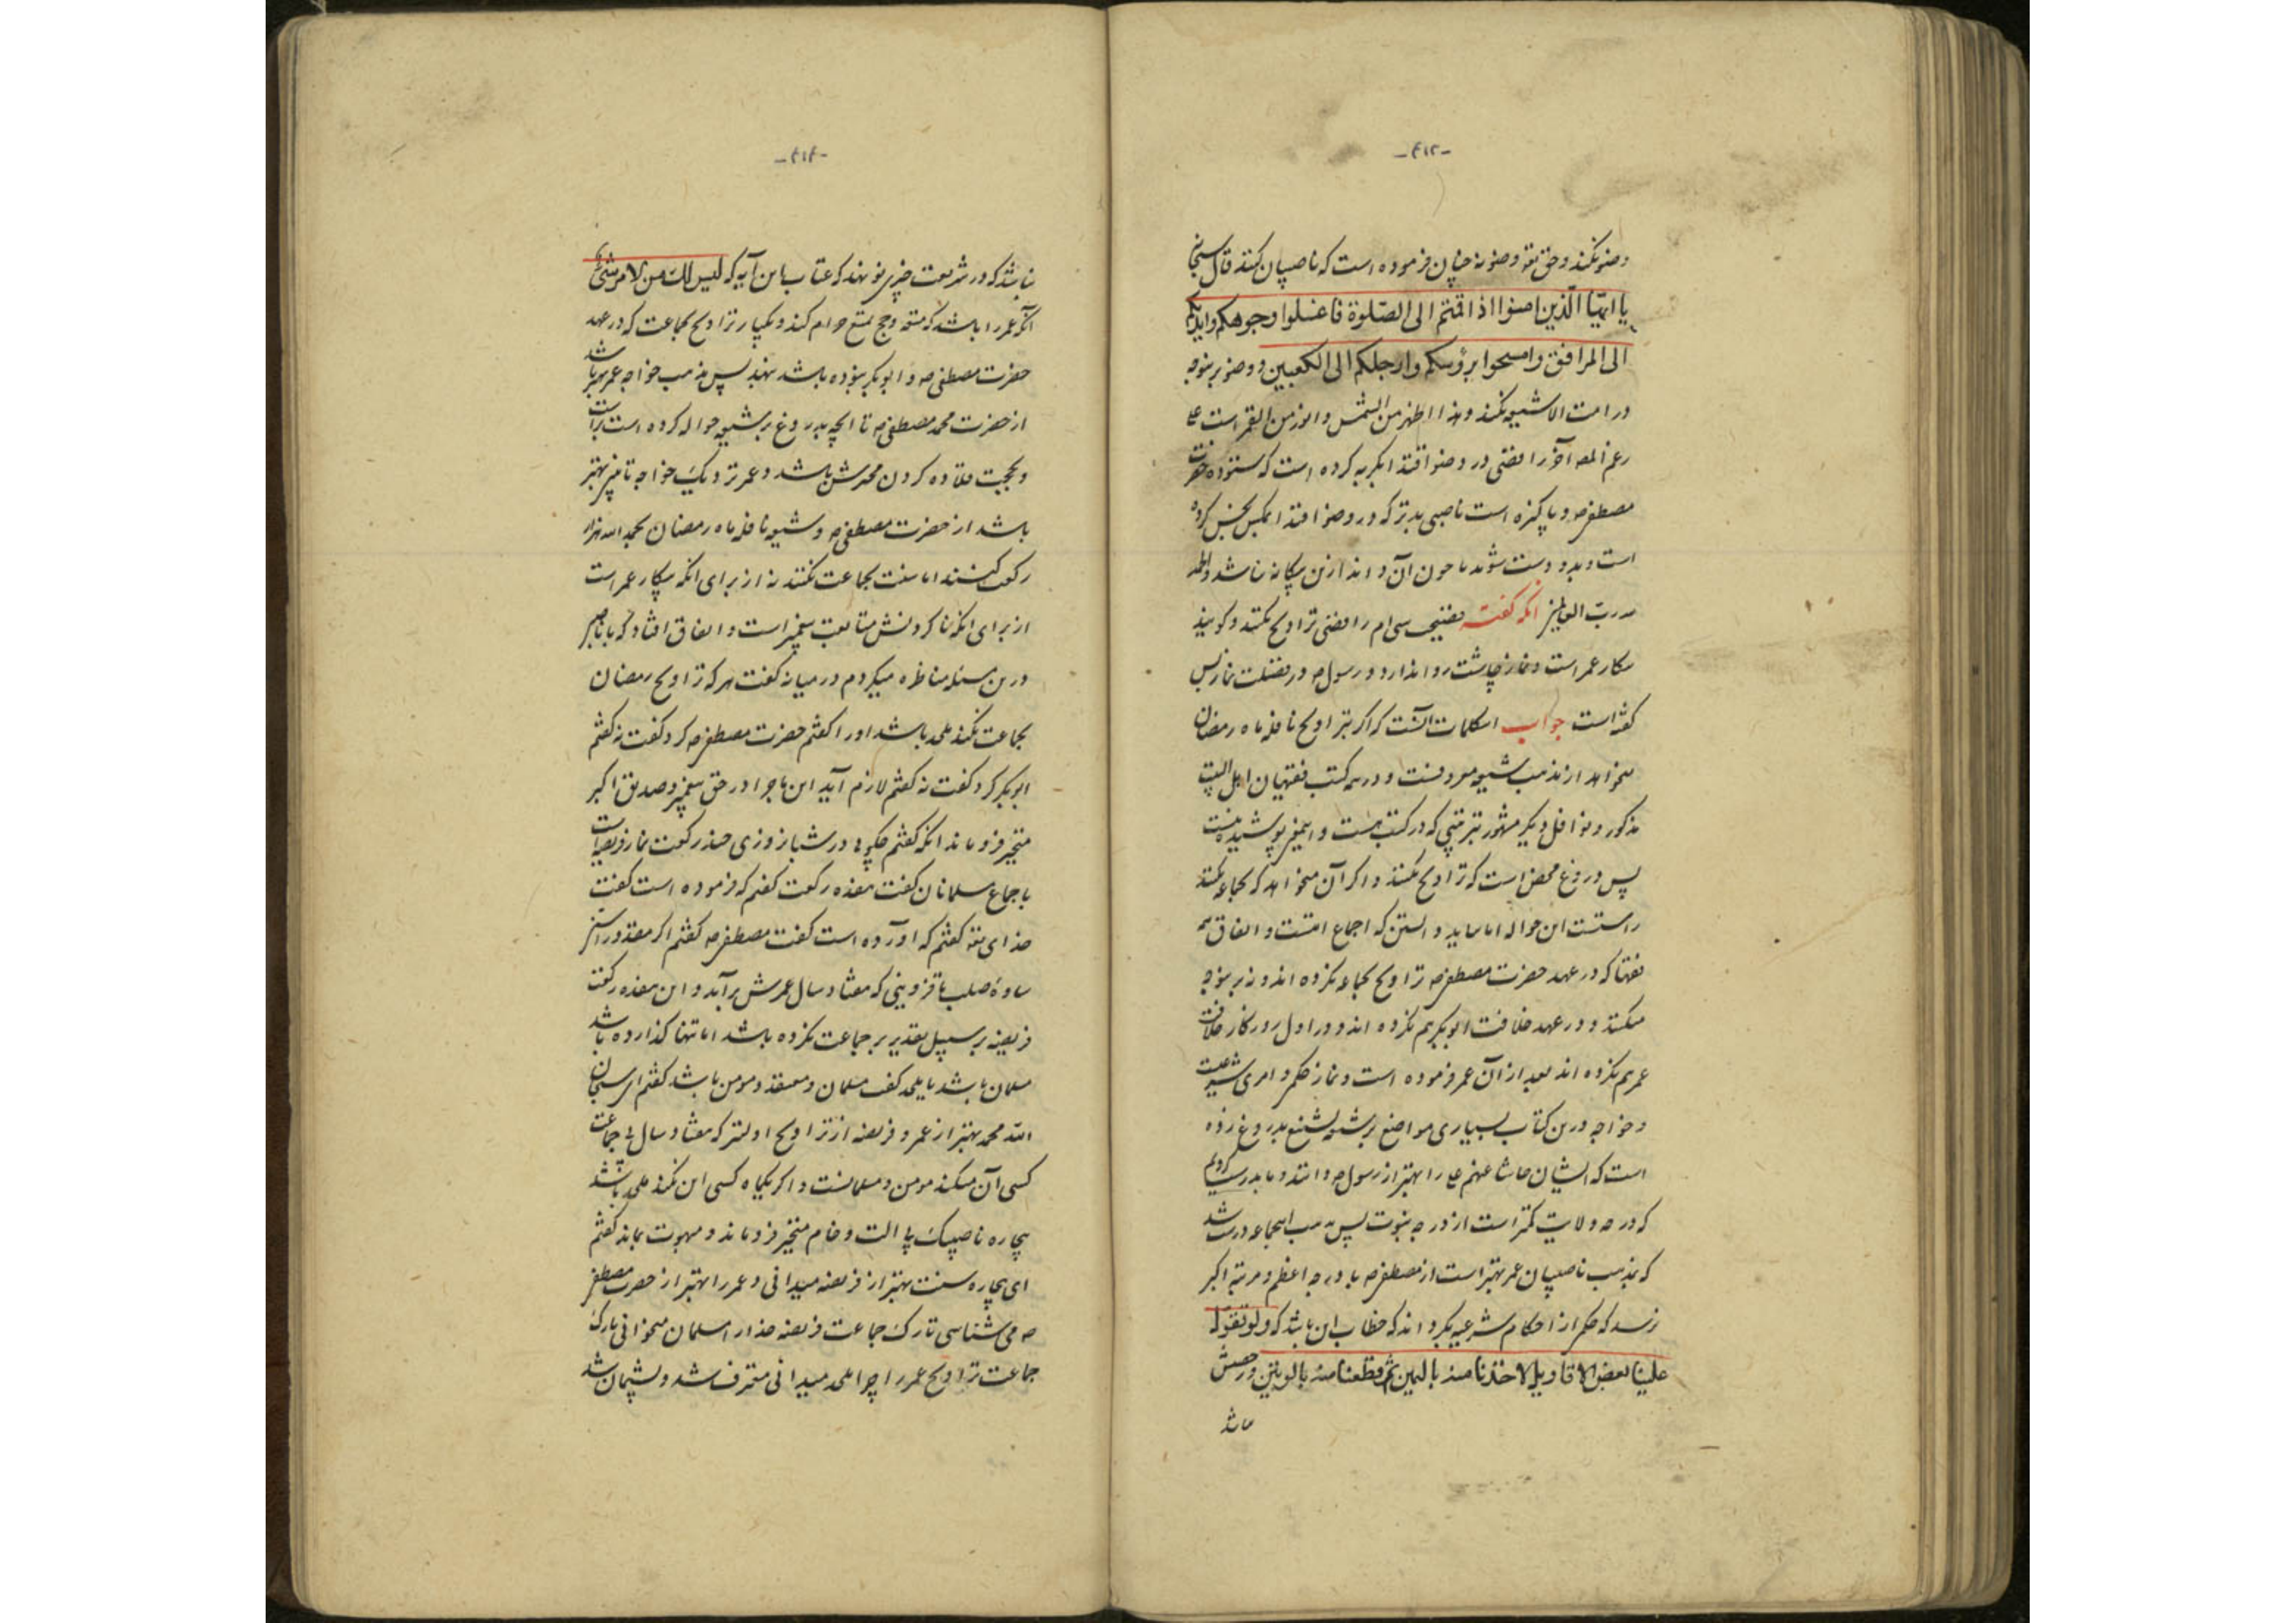 -۴۱۳-
وضو نکند و حق تعه وضو نه چنان فرموده است که ناصبیان کنند قال سبحانه
یا ایها الذین امنوا اذا قمتم الی الصلوة فاغسلوا وجوهکم وایدیکم
الی المرافق وامسحوا برؤسکم وارجلکم الی الکعبین و وضو برینوجه
در امت الا شیعه نکنند و هذا اظهر من الشمس و انور من القمر است علی
رغم المصا آخر رافضی در وضو اقتدا بگربه کرده است که ستوده حضرت
مصطفی ص و پاکیزه است ناصبی بدتر که در وضو اقتدا بمگس نجس کرده
است و بدو دست شوید تا چون آن داند ازین بیگانه نباشد والحمد
لله رب العالمین آنکه گفته فضیحت سی‌ام رافضی تراویح نکند و گویند
بیکار عمر است و نماز چاشت روا ندارد و رسول ص در فضیلت نماز بس
گفته است جواب این کلمات آنست که اگر بتراویح نافله ماه رمضان
میخواهد از مذهب شیعه معروفست و در همه کتب فقیهان اهل البیت
مذکور و نوافل دیگر مشهور بترتیبی که در کتب هست و اینمعنی پوشیده نیست
پس دروغ محض است که تراویح نکنند و اگر آن میخواهد که بجماعه نکنند
راستست این حواله اما بباید دانستن که اجماع امتست و اتفاق همه
فقها که در عهد حضرت مصطفی ص تراویح بجماعه نکرده اند و نه برینوجه
میکنند و در عهد خلافت ابوبکر هم نکرده اند و در اول روزگار خلافت
عمر هم نکرده اند بعد از آن عمر فرموده است و نماز حکم و امری شریعت
و خواجه درین کتاب بسیاری مواضع بر شیعه تشنیع بدروغ زده
است که ایشان حاشا عنهم علی را بهتر از رسول ص دانند و ما بدرست کردیم
که درجه ولایت کمتر است از درجه نبوت پس مذهب اینجماعه درست باشد
که بمذهب ناصبیان عمر بهتر است از مصطفی ص با درجه اعظم و مرتبه اکبر
نرسد که حکم از احکام شرعیه بگرداند که خطاب این باشد که ولو تقول
علینا بعض الاقاویل لاخذنا منه بالیمین ثم لقطعنا منه بالوتین و رخصتش
نباشد
-۴۱۴-
نباشد که در شریعت چیزی نو نهند که عتاب با این آیه که لیس لک من الامر شیء
آنگه عمر را باشد که متعه و حج تمتع حرام کند و یکبار تراویح بجماعت که در عهد
حضرت مصطفی ص و ابوبکر نبوده باشد بنهد پس بمذهب خواجه عمر بهتر باشد
از حضرت محمد مصطفی ص تا آنچه بدروغ بر شیعه حواله کرده است راست
و بحجت قلاده کردن محدثش باشد و عمر نزدیک خواجه تا منبر بهتر
باشد از حضرت مصطفی ص و شیعه نافله ماه رمضان بحمد الله هزار
رکعت کنند اما سنت بجماعت نکنند نه از برای آنکه بیکار عمر است
از برای آنکه ناکردنش متابعت پیغمبر است و اتفاق افتاد که با ناصبی
درین مسئله مناظره میکردم در میانه گفت هر که تراویح رمضان
بجماعت نکند ملحد باشد اورا گفتم حضرت مصطفی ص کرد گفت نه گفتم
ابوبکر کرد گفت نه گفتم لازم آید این ماجرا در حق پیغمبر و صدیق اکبر
متحیر فروماند آنکه گفتم چگویی در شبانروزی چند رکعت نماز فریضه است
باجماع مسلمانان گفت هفده رکعت گفتم که فرموده است گفت
خدای تعه گفتم که آورده است گفت مصطفی ص گفتم اگر معذور از
ساوهٔ صلب یا قزوینی که هفتاد سال عمرش برآید و این هفده رکعت
فریضه بر سبیل تقدیر بر جماعت نکرده باشد اما تنها گذارده باشد
مسلمان باشد یا ملحد گفت مسلمان و معتقد و مومن باشد گفتم ای سبحان
الله محمد بهتر از عمر و فریضه از تراویح اولیتر که هفتاد سال بی جماعت
کسی آن میکند مومن و مسلمانست و اگر یکماه کسی این نکند ملحد باشد
بیچاره ناصبیک پالت و خام متحیر فروماند و مبهوت بماند گفتم
ای بیچاره سنت بهتر از فریضه میدانی و عمر را بهتر از حضرت مصطفی
ص می شناسی تارک جماعت فریضه خدا را مسلمان میخوانی تارک
جماعت تراویح عمر را چرا ملحد میدانی معترف شد و پشیمان شد